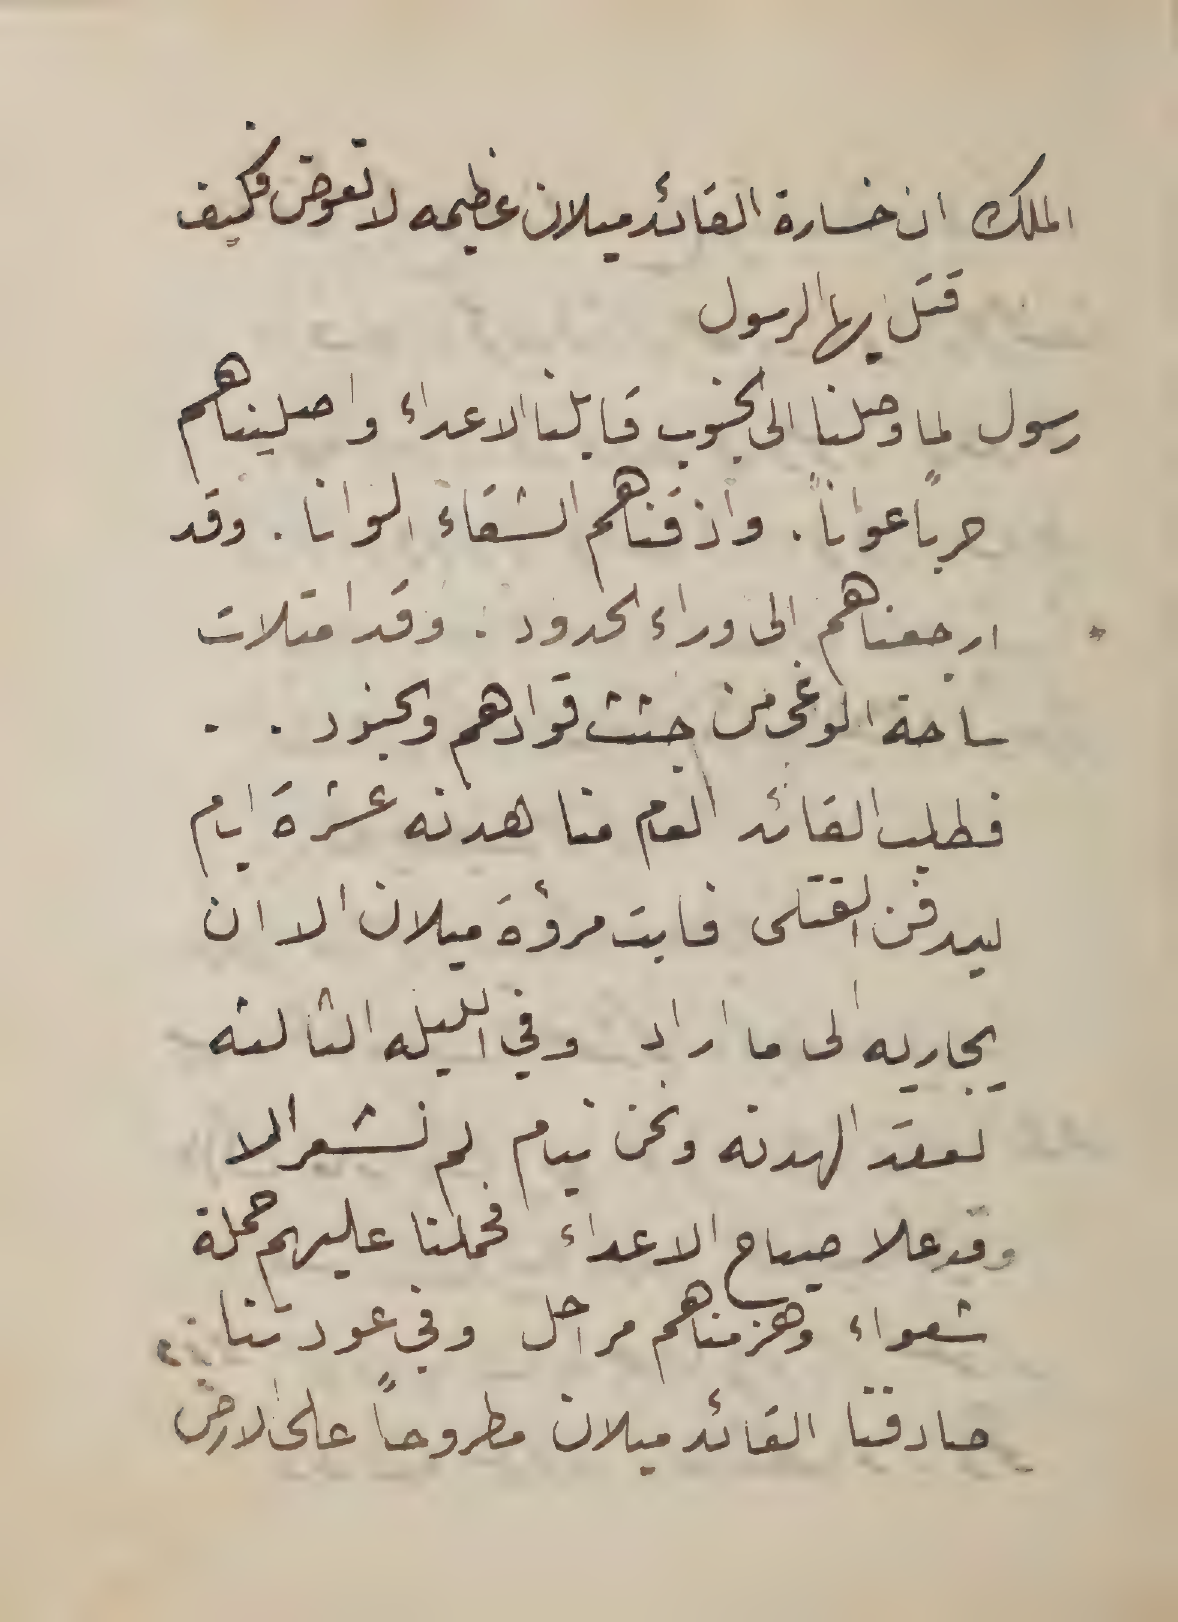 الملك ان خسارة القائد ميلان عظيمه لا تعوض فكيف
قتل يها الرسول
رسول لما وصلنا الى الجنوب قابلنا الاعداء واصليناهم
حرباً عواناً . واذقناهم الشقاء الوانا . وقد
ارجعناهم الى وراء الحدود . وقد امتلات
ساحة الوغى من جثث قوادهم والجنود . .
فطلب القائد العام منا هدنه عشرة ايام
ليدفن القتلى فابت مرؤة ميلان الا ان
يجاريه الى ما اراد وفي الليله الثالثه
لعقد الهدنه ونحن نيام لم نشعر الا
وقد علا صياح الاعداء فحملنا عليهم حملة
شعواء وهزمناهم مراحل وفي عودتنا
صادفنا القائد ميلان مطروحاً على الارض